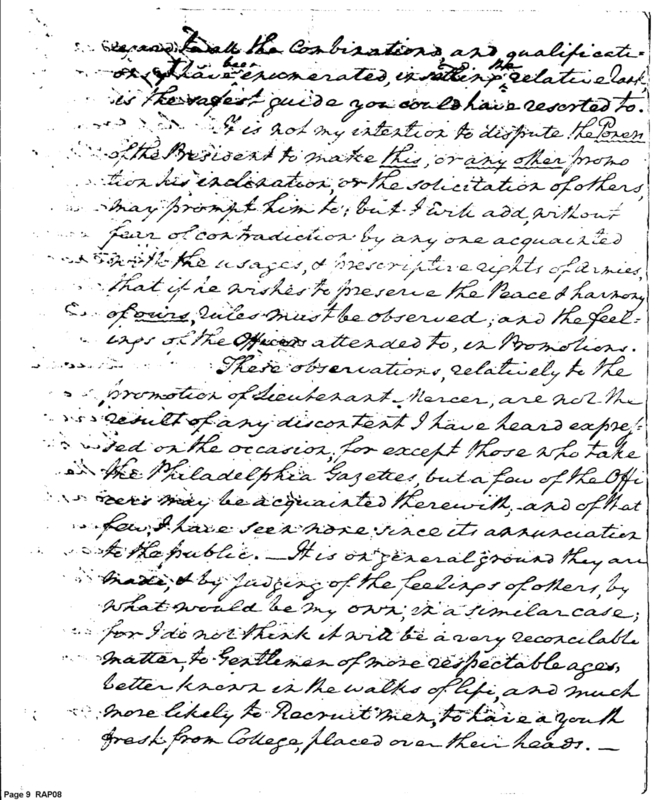 regard to all the Combinations and qualificati=
ons I have been enumerated, in settling the relative rank
is the safest guide you could have resorted to.
It is not my intention to dispute the Powers
of the President to make this, or any other promo
tion his inclination, or the solicitation of others,
may prompt him to; but I will add, without
fear of contradiction by any one acquainted
with the usages, & prescriptive rights of Armies,
that if he wishes to preserve the Peace & harmony
of ours, rules must be observed; and the feel=
ings of the Officers attended to, in Promotions.
These observations, relatively to the
promotion of Lieutenant Mercer, are not the
result of any discontent I have heard expres-
sed on the occasion; for except those who take
the Philadelphia Gazettes, but a few of the Offi
cers may be acquainted therewith, and of that
few, I have seen none since its annunciation
to the public. — It is on general ground they are
made, & by judging of the feelings of others, by
what would be my own, in a similar case;
for I do not think it will be a very reconcilable
matter, to Gentlemen of more respectable ages,
better known in the walks of life, and much
more likely to Recruit men, to have a youth
fresh from College, placed over their heads. —
Page 9 RAP08